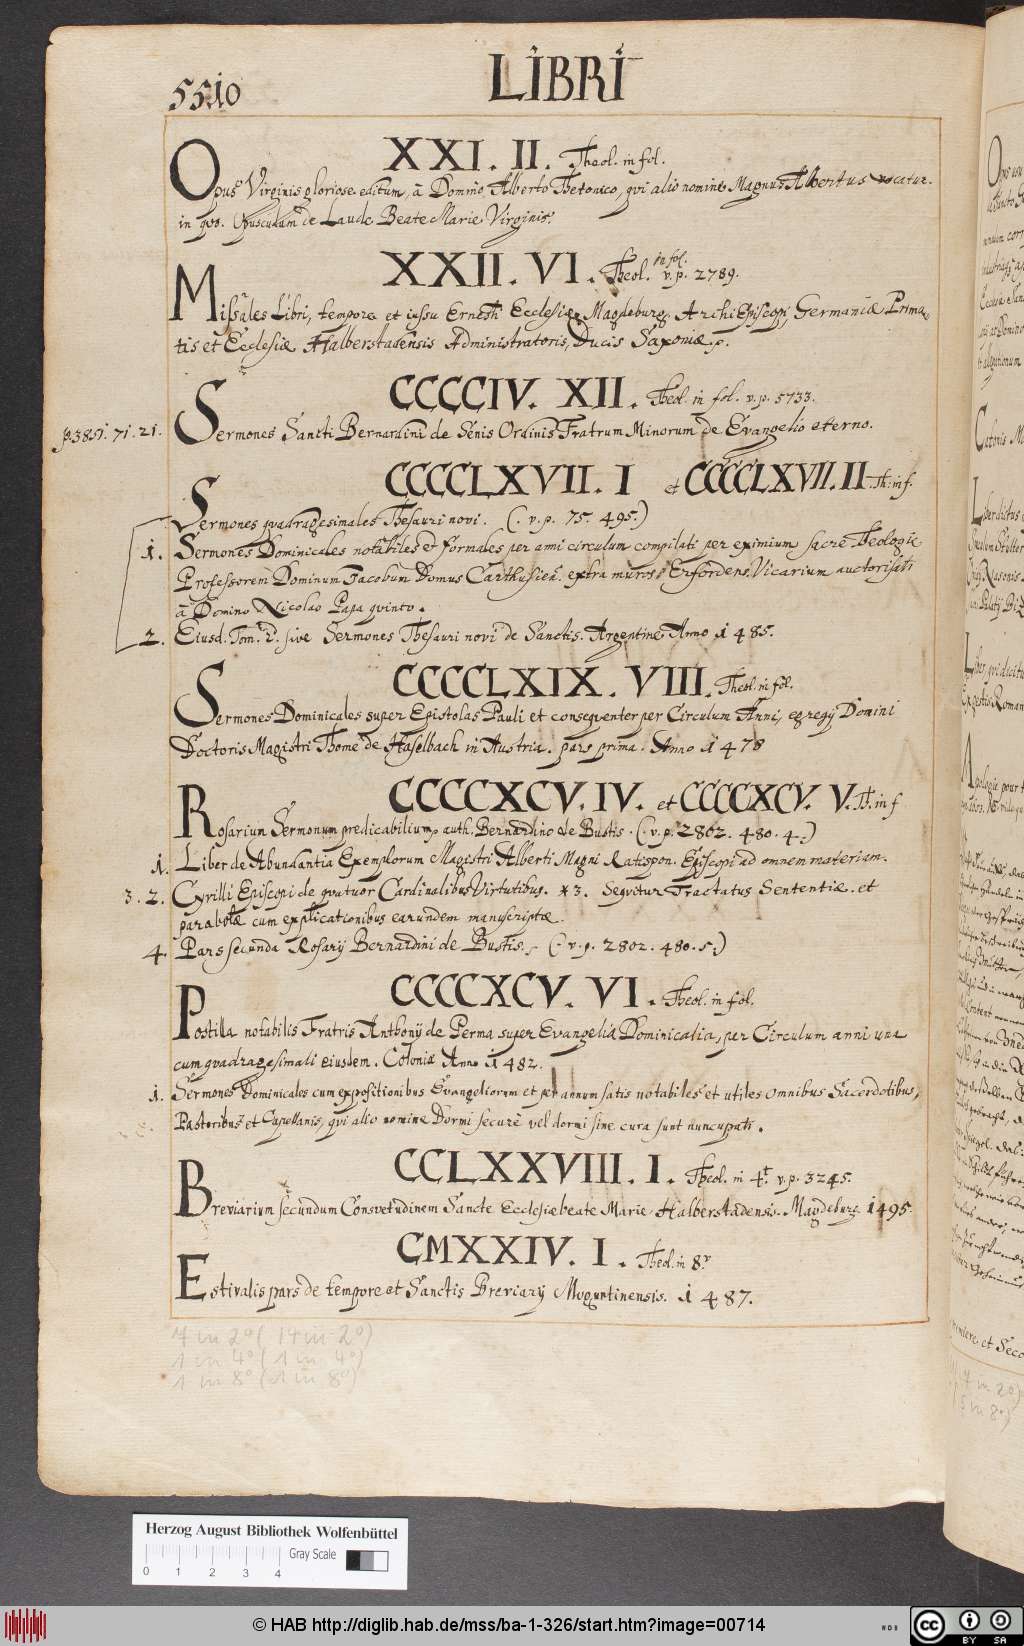 5510
LIBRI
XXI. II. Theol. in fol.
Opus Virginis gloriose editum, â Domino Alberto Thetonico, qvi alio nomine Magnus Albertus vocatur.
in qvo. Opusculum de Laude Beate Marie Virginis.
XXII. VI. Theol. in fol. v. p. 2789.
Missales Libri, tempore et iussu Ernesti Ecclesiæ Magdeburg. ArchiEpiscopi, Germaniæ Prima-
tis et Ecclesiæ Halberstadensis Administratoris, Ducis Saxoniæ.
CCCCIV. XII. Theol. in fol. v. p. 5733.
p. 3851. 71. 21.
Sermones Sancti Bernardini de Senis Ordinis Fratrum Minorum de Evangelio eterno.
CCCCLXVII. I et CCCCLXVII. II. Th: in f.
Sermones qvadragesimales Thesauri novi. (. v. p. 75. 495.)
1. Sermones Dominicales notabiles et formales per anni circulum compilati per eximium sacre Theologie
Professorem Dominum Jacobum Domus Carthusien. extra muros Erfordens. Vicarium auctorisati
â Domino Nicolao Papa qvinto.
2. Eiusd. Tom. 2. sive Sermones Thesauri novi de Sanctis. Argentine Anno 1485.
CCCCLXIX. VIII. Theol. in fol.
Sermones Dominicales super Epistolas Pauli et conseqventer per Circulum Anni, egregij Domini
Doctoris Magistri Thome de Haselbach in Austria. pars prima. Anno 1478
CCCCXCV. IV. et CCCCXCV. V. Th. in f
Rosarium Sermonum predicabilium, auth. Bernardino de Bustis. (. v. p. 2802. 480. 4.)
1. Liber de Abundantia Exemplorum Magistri Alberti Magni Ratispon. Episcopi ad omnem materiam.
3. 2. Cyrilli Episcopi de qvatuor Cardinalibus Virtutibus. * 3. Seqvitur Tractatus Sententiæ. et
parabolæ cum explicationibus earundem manuscriptæ.
4. Pars secunda Rosarij Bernardini de Bustis. (. v. p. 2802. 480. 5.)
CCCCXCV. VI. Theol. in fol.
Postilla notabilis Fratris Anthonij de Perma super Evangelia Dominicalia, per Circulum anni una
cum qvadragesimali eiusdem. Coloniæ Anno 1482.
1. Sermones Dominicales cum expositionibus Evangeliorum et per annum satis notabiles et utiles omnibus Sacerdotibus,
Pastoribus et Capellanis, qvi alio nomine Dormi securè vel dormi sine cura sunt nuncupati.
CCLXXVIII. I. Theol. in 4t. v. p. 3245.
Breviarium secundum Consvetudinem Sancte Ecclesiæ beate Marie Halberstadensis. Magdeburg. 1495.
CMXXIV. I. Theol. in 8.v
Estivalis pars de tempore et Sanctis Breviarij Moguntinensis. 1487.
7 in 2° (14 in 2°)
1 in 4° (1 in 4°)
1 in 8° (1 in 8°)
Herzog August Bibliothek Wolfenbüttel
Gray Scale
0 1 2 3 4
© HAB http://diglib.hab.de/mss/ba-1-326/start.htm?image=00714
WDB
cc BY SA